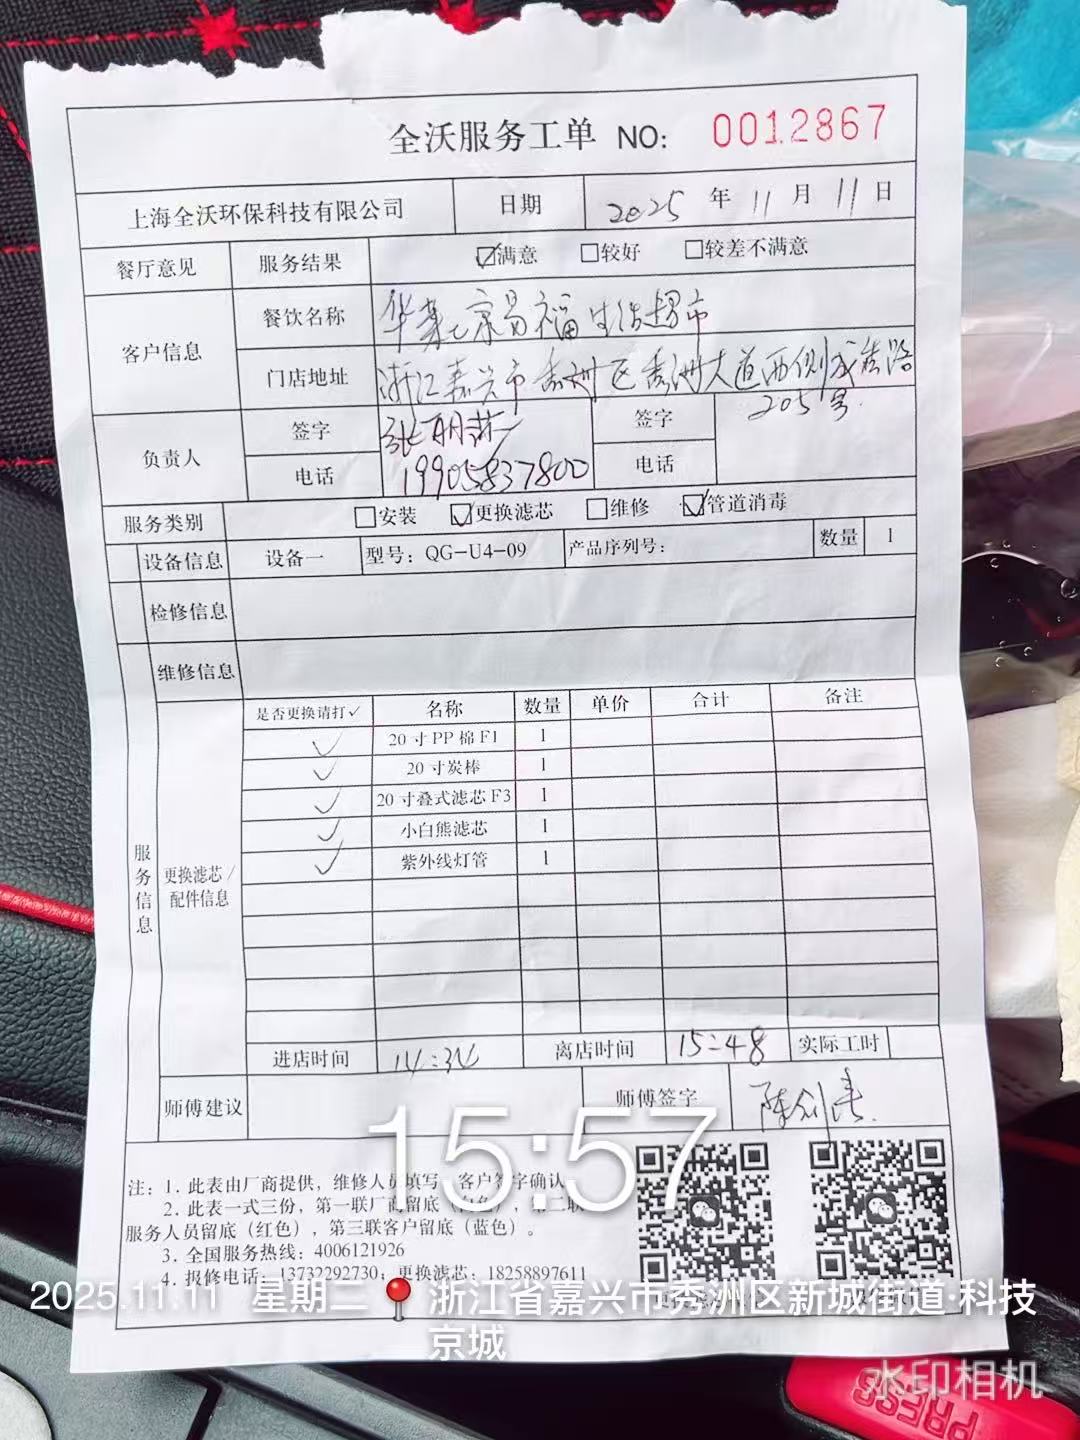 全沃服务工单 NO: 0012867
上海全沃环保科技有限公司 日期 2025 年 11 月 11 日
餐厅意见 服务结果 ☑满意 □较好 □较差不满意
客户信息 餐饮名称 华莱士京易福生活超市
门店地址 浙江嘉兴市秀洲区秀洲大道西侧成秀路
205号
负责人 签字 张 签字
电话 19905837800 电话
服务类别 □安装 ☑更换滤芯 □维修 ☑管道消毒
设备信息 设备一 型号：QG-U4-09 产品序列号： 数量 1
检修信息
维修信息
服务信息
更换滤芯/
配件信息
是否更换请打✓ 名称 数量 单价 合计 备注
✓ 20寸PP棉F1 1
✓ 20寸炭棒 1
✓ 20寸叠式滤芯F3 1
✓ 小白熊滤芯 1
✓ 紫外线灯管 1
进店时间 14:34 离店时间 15:48 实际工时
师傅建议 师傅签字 陈剑
15:57
注：1. 此表由厂商提供，维修人员填写，客户签字确认
2. 此表一式三份，第一联厂商留底（白色），第二联
服务人员留底（红色），第三联客户留底（蓝色）。
3. 全国服务热线：4006121926
4. 报修电话：13732292730；更换滤芯：18258897611
2025.11.11 星期二 浙江省嘉兴市秀洲区新城街道·科技
京城
水印相机
PRESS